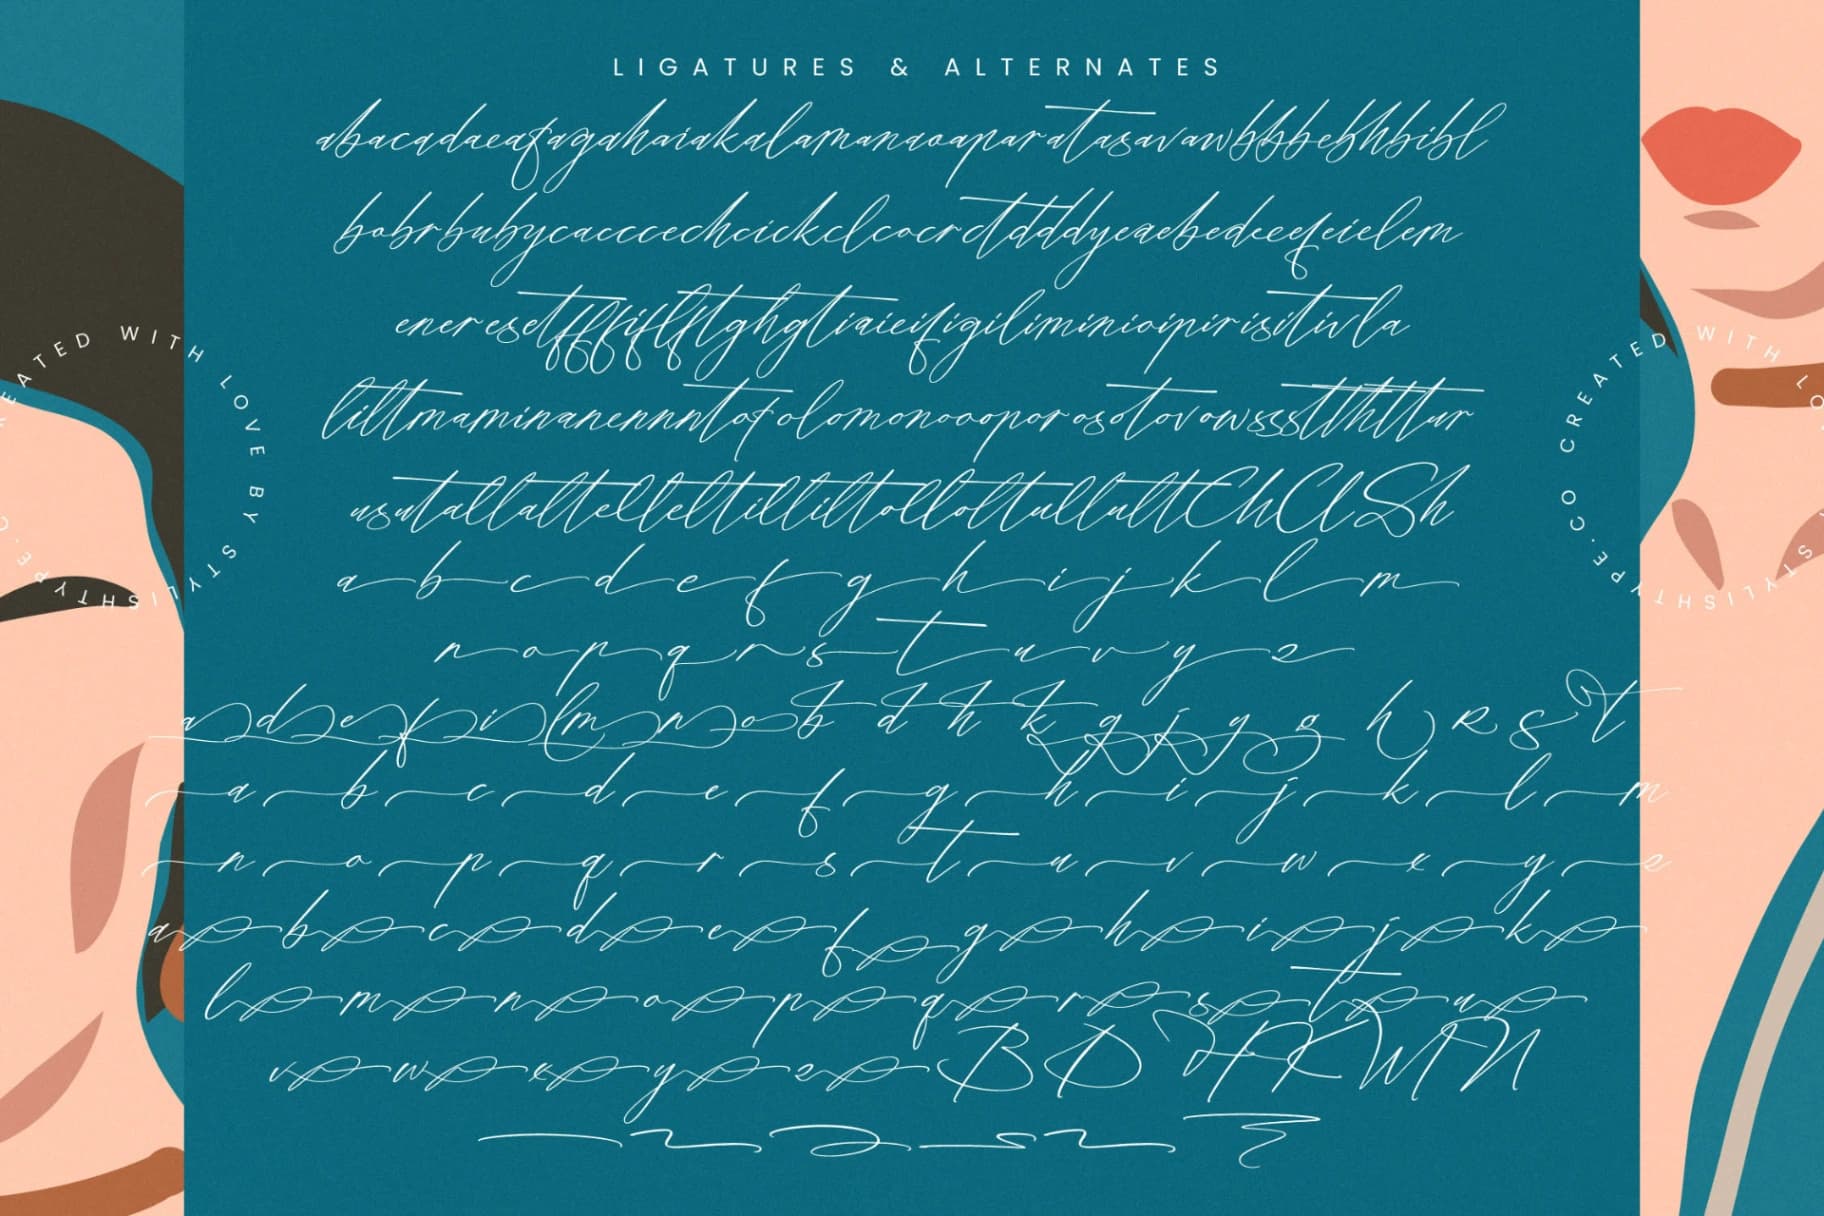 LIGATURES & ALTERNATES
abacadaeafagahaiakalamanaoaparatasavawbbbebhbibl
bobrbubycacccechcickclcocrctdddyeaebedeeefeielem
eneresetfffiflftghgtiaieifigiliminioipirisitivla
liltmaminanennntofolomonooopor osotovowsssttthtttur
usutallaltelleltilliltolloltullultChClSh
a b c d e f g h i j k l m
n o p q r s t u v y z
a d e f i l m n o b d h k g j y g h R S t
a b c d e f g h i j k l m
n o p q r s t u v w x y z
a b c d e f g h i j k
l m n o p q r s t u
v w x y z B D H K W N
CREATED WITH LOVE BY STYLISHTYPE.CO
CREATED WITH LOVE BY STYLISHTYPE.CO